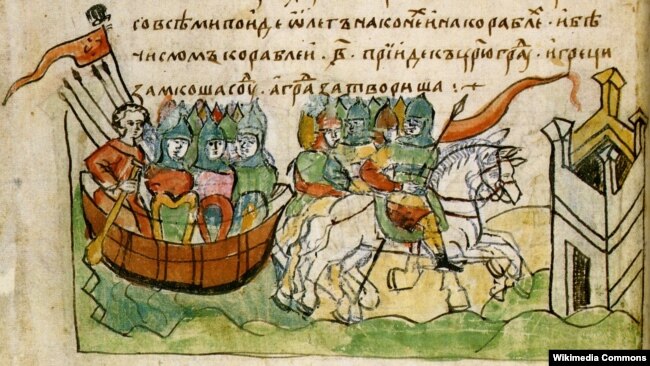 со всѣми поиде ѡлегъ на конеи и на кораблѣ . и бѣ
числомъ кораблеи . в҃ . прїиде къ цр҃югра҃ . и греци
замкоша соу҃ . а гра҃ затвориша :
Wikimedia Commons